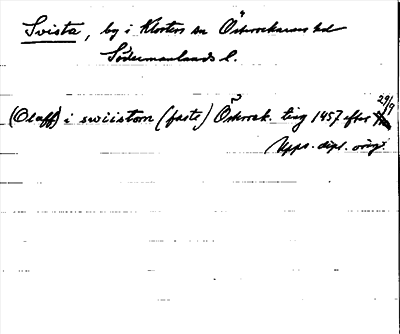 Svista, by i Klosters sn Österrekarnes hd
Södermanlands l.
29/9
(Olaff) i swiistom (faste) Österrek. ting 1457 efter
Upps. dipl. orig.